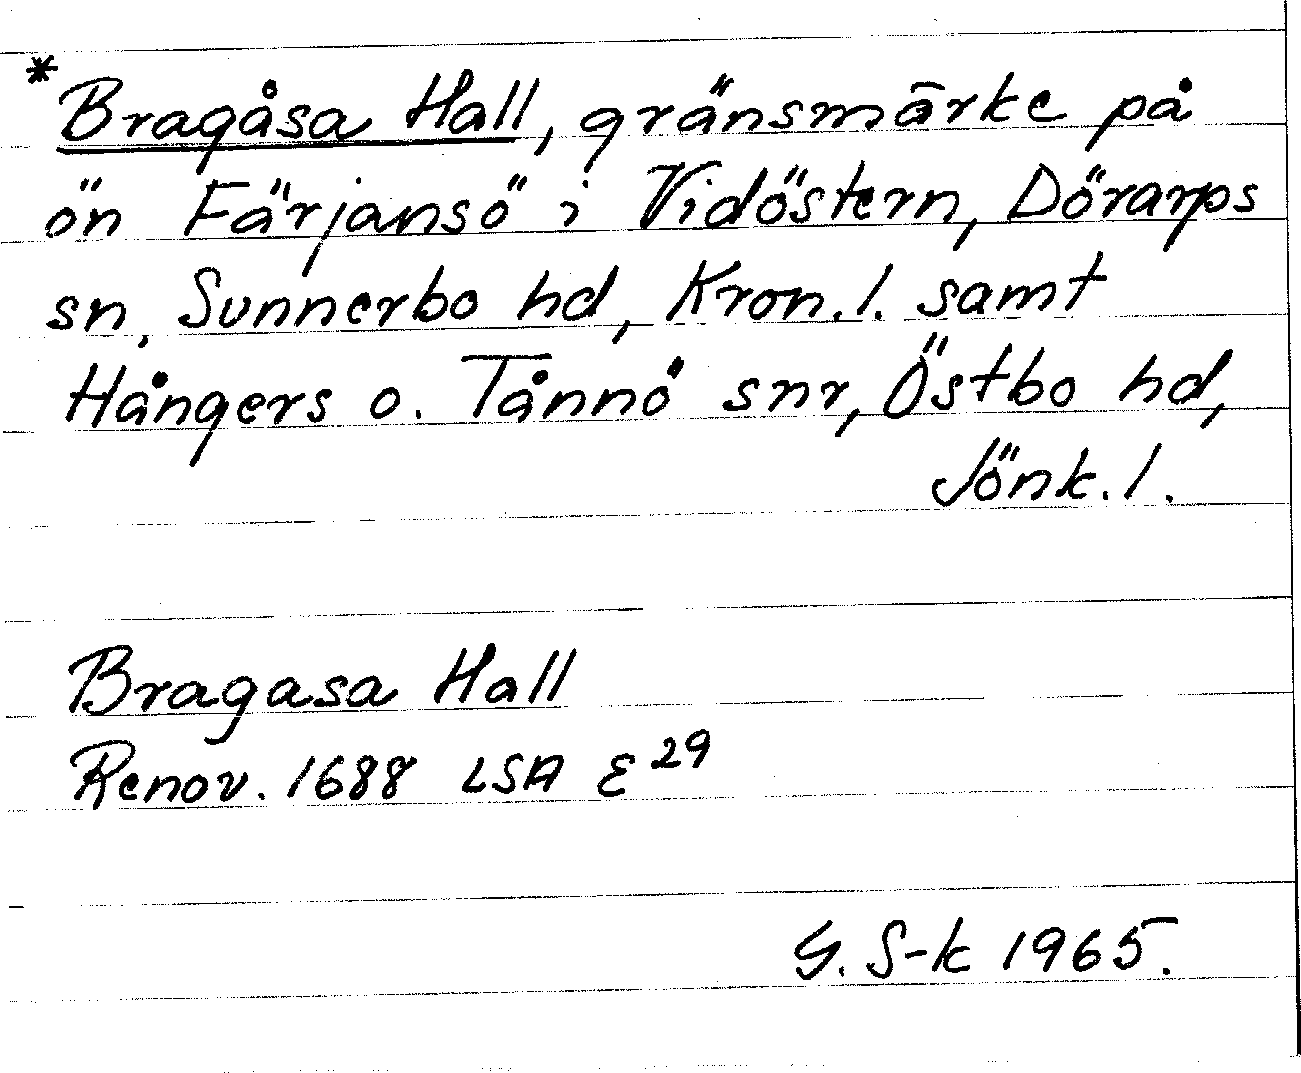 *Bragåsa Hall, gränsmärke på
ön Färjansö i Vidöstern, Dörarps
sn, Sunnerbo hd, Kron. l. samt
Hångers o. Tånnö snr, Östbo hd,
Jönk. l.
Bragasa Hall
Renov. 1688 LSA E 29
G. S-k 1965.